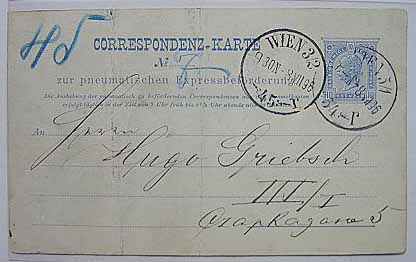 45
CORRESPONDENZ-KARTE
№ 7
zur pneumatischen Expressbeförderung
Die Aushebung der pneumatisch zu befördernden Correspondenzen aus den Sammelkasten
erfolgt täglich in der Zeit von 7 Uhr früh bis 8½ Uhr abends
WIEN 32
9 30N - 8 VII 96
45 - T
WIEN
An
Herrn
Hugo Griebsch
III/1
Czapkagasse 5